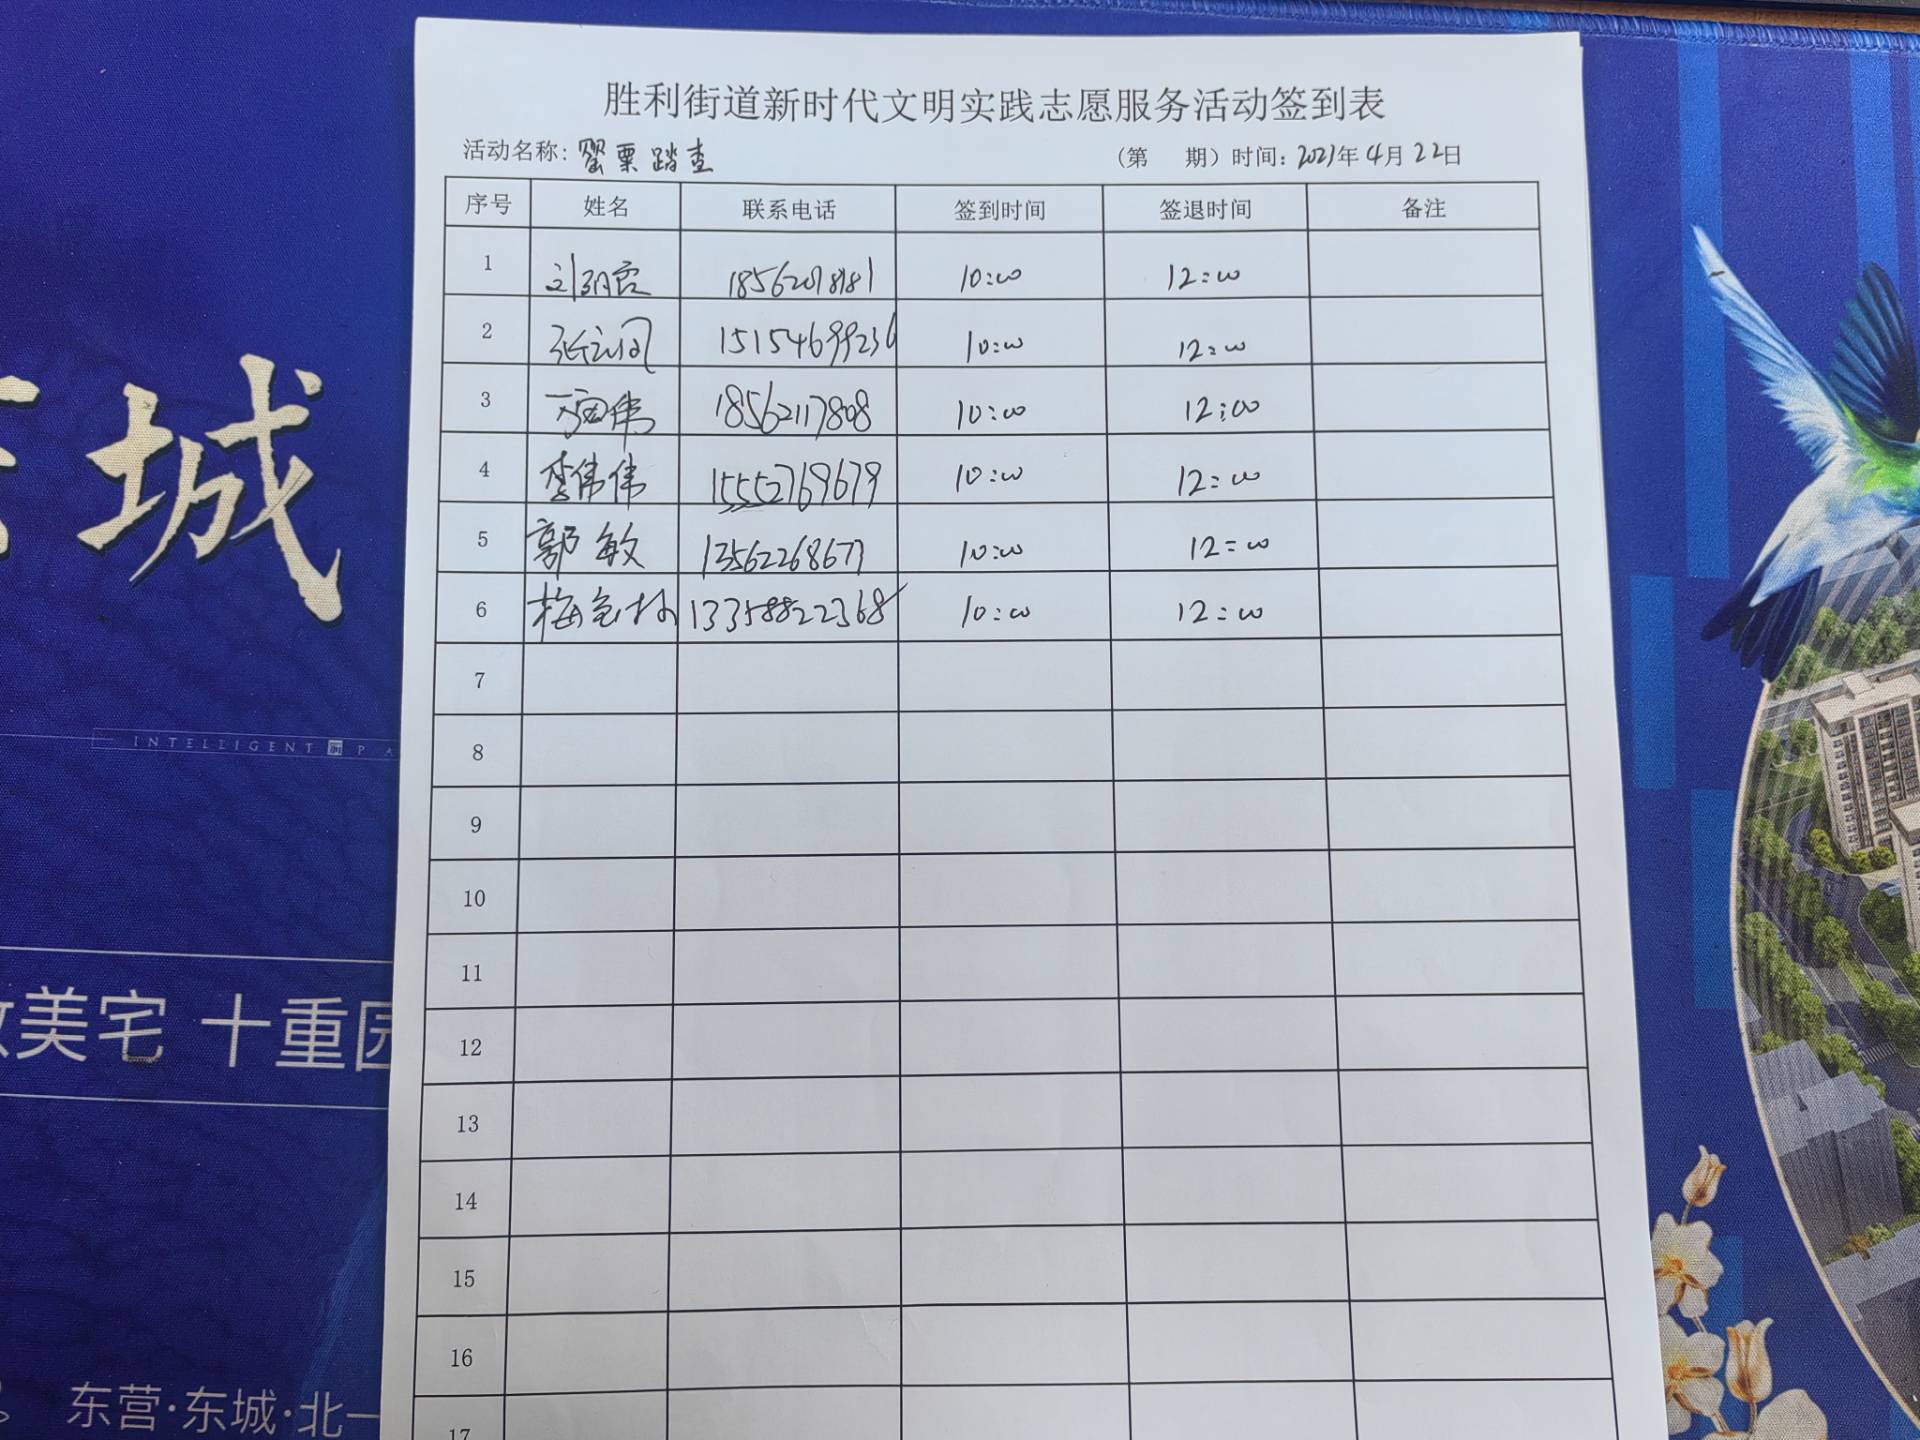 胜利街道新时代文明实践志愿服务活动签到表
活动名称: 罂粟踏查 (第 期) 时间: 2021年 4月 22日
序号 姓名 联系电话 签到时间 签退时间 备注
1 18562018181 10:00 12:00
2 15154699236 10:00 12:00
3 18562117808 10:00 12:00
4 李伟伟 15552769679 10:00 12:00
5 郭敏 13562268677 10:00 12:00
6 13358822368 10:00 12:00
7
8
9
10
11
12
13
14
15
16
17
城
INTELLIGENT PA
美宅 十重园
东营·东城·北一